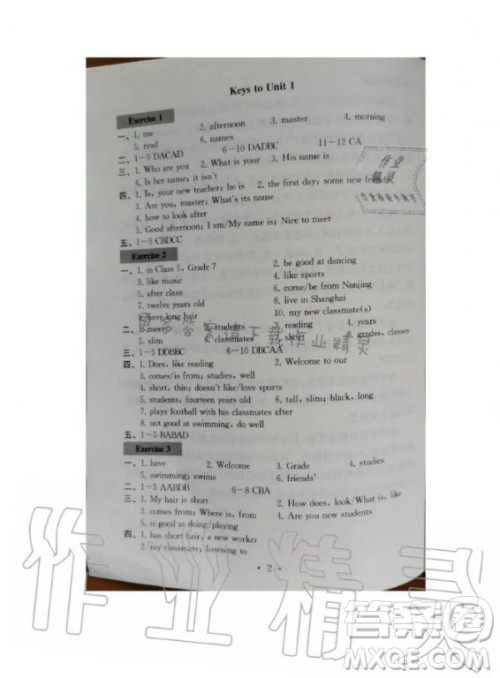 Keys to Unit 1
Exercise 1
一、1. me 2. afternoon 3. master 4. morning
5. read 6. names
二、1—5 DACAD 6—10 DADBC 11—12 CA
三、1. Who are you 2. What is your 3. His name is
4. Is her name; it isn't
四、1. Is, your new teacher; he is 2. the first day; some new friends
3. Are you, master; What's its name
4. how to look after
5. Good afternoon; I am/My name is; Nice to meet
五、1—5 CBDCC
Exercise 2
一、1. in Class 5, Grade 7 2. be good at dancing
3. like music 4. like sports
5. after class 6. come/be from Nanjing
7. twelve years old 8. live in Shanghai
9. have long hair 10. my new classmate(s)
二、1. meet 2. reading 4. years
5. slim 6. classmates short 8. grades, classes
三、1—5 DDBBC 6—10 DBCAA
四、1. Does, like reading 2. Welcome to our
3. comes/is from; studies, well
4. short, thin; doesn't like/love sports
5. students, fourteen years old 6. tall, slim; black, long
7. plays football with his classmates after
8. not good at swimming, do well
五、1—5 BABAD
Exercise 3
一、1. have 2. Welcome 3. Grade 4. studies
5. swimming; swims 6. friends'
二、1—5 AABDB 6—8 CBA
三、1. My hair is short 2. How does, look/What is, like
3. comes from; Where is, from 4. Are you new students
5. is good at doing/playing
四、1. has short hair; a new worker
2. my classmate; listening to
· 2 ·
作业精灵
答案圈
MXQE.COM